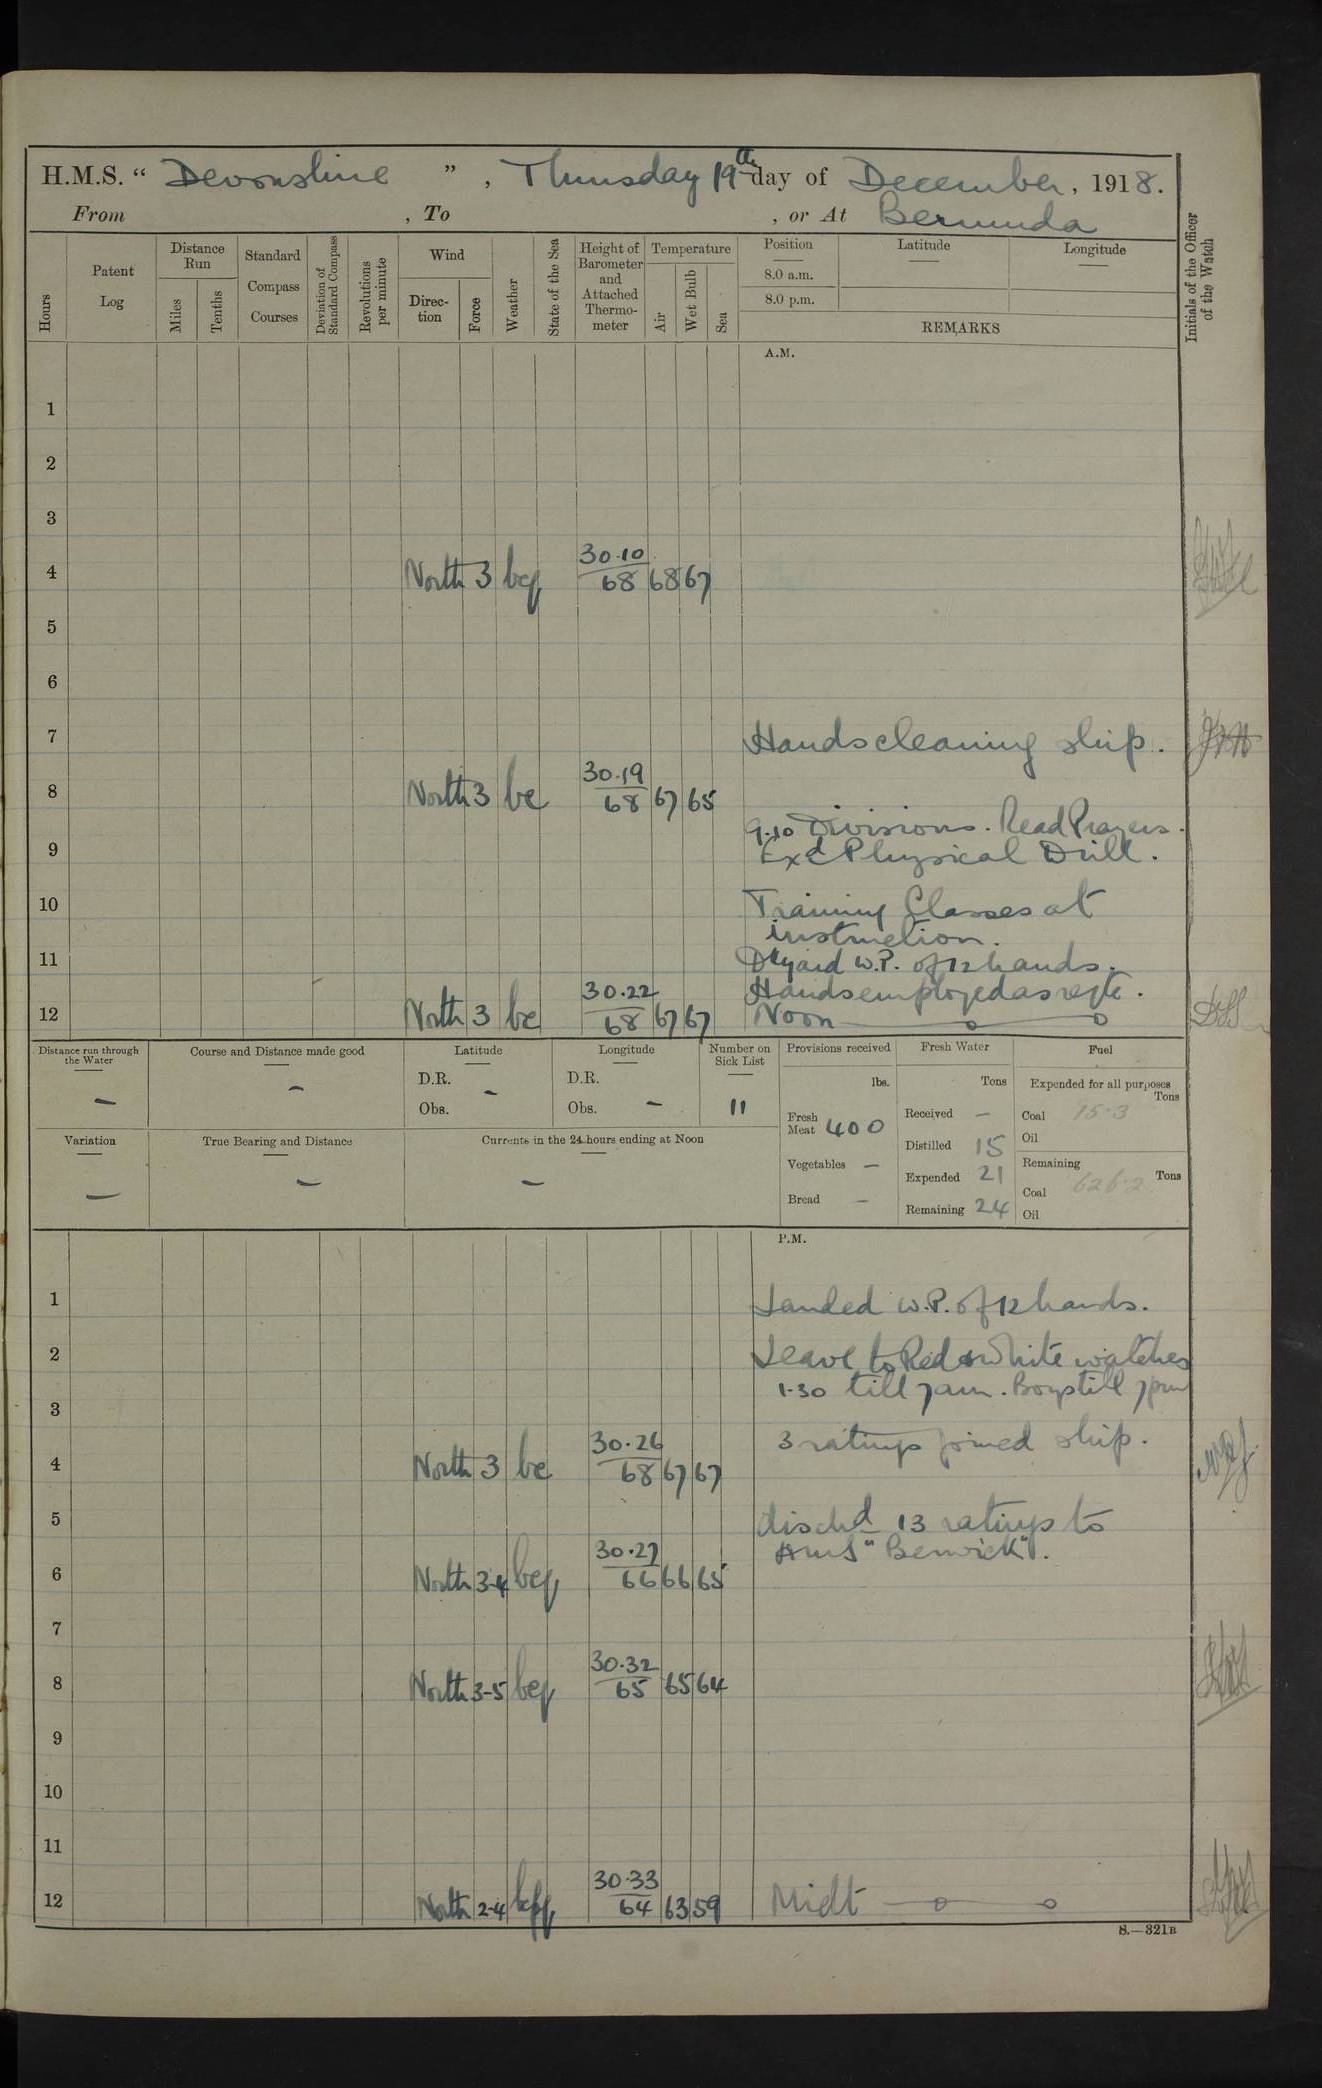 H.M.S. “ Devonshire ” , Thursday 19th day of December, 1918.
From , To , or At Bermuda
Hours
Patent Log
Distance Run
Miles
Tenths
Standard Compass Courses
Deviation of Standard Compass
Revolutions per minute
Wind
Direc-tion
Force
Weather
State of the Sea
Height of Barometer and Attached Thermo-meter
Temperature
Air
Wet Bulb
Sea
Position
Latitude
Longitude
8.0 a.m.
8.0 p.m.
REMARKS
Initials of the Officer of the Watch
A.M.
1
2
3
4 North 3 bcq 30.10 68 68 67
5
6
7 Hands cleaning ship.
8 North 3 bc 30.19 68 67 65
9.10 Divisions. Read Prayers.
9 Exd Physical Drill.
10 Training Classes at
instruction.
11 Dkyard W.P. of 12 hands.
Hands employed as reqte.
12 North 3 bc 30.22 68 67 67 Noon
Distance run through the Water
—
Course and Distance made good
—
Latitude
D.R. —
Obs.
Longitude
D.R.
Obs. —
Number on Sick List
11
Provisions received
lbs.
Fresh Meat 400
Vegetables —
Bread —
Fresh Water
Tons
Received —
Distilled 15
Expended 21
Remaining 24
Fuel
Expended for all purposes
Tons
Coal 15.3
Oil
Remaining
Tons
Coal 626.2
Oil
Variation
—
True Bearing and Distance
—
Currents in the 24 hours ending at Noon
—
P.M.
1 Landed W.P. of 12 hands.
2 Leave to Red & White watches
1-30 till 7am. Boys till 7pm
3
3 ratings joined ship.
4 North 3 bc 30.26 68 67 67
5 dischd 13 ratings to
HMS "Berwick".
6 North 3-4 bcq 30.27 66 66 65
7
8 North 3-5 bcq 30.32 65 65 64
9
10
11
12 North 2-4 30.33 64 63 59 Midt
S.—321B